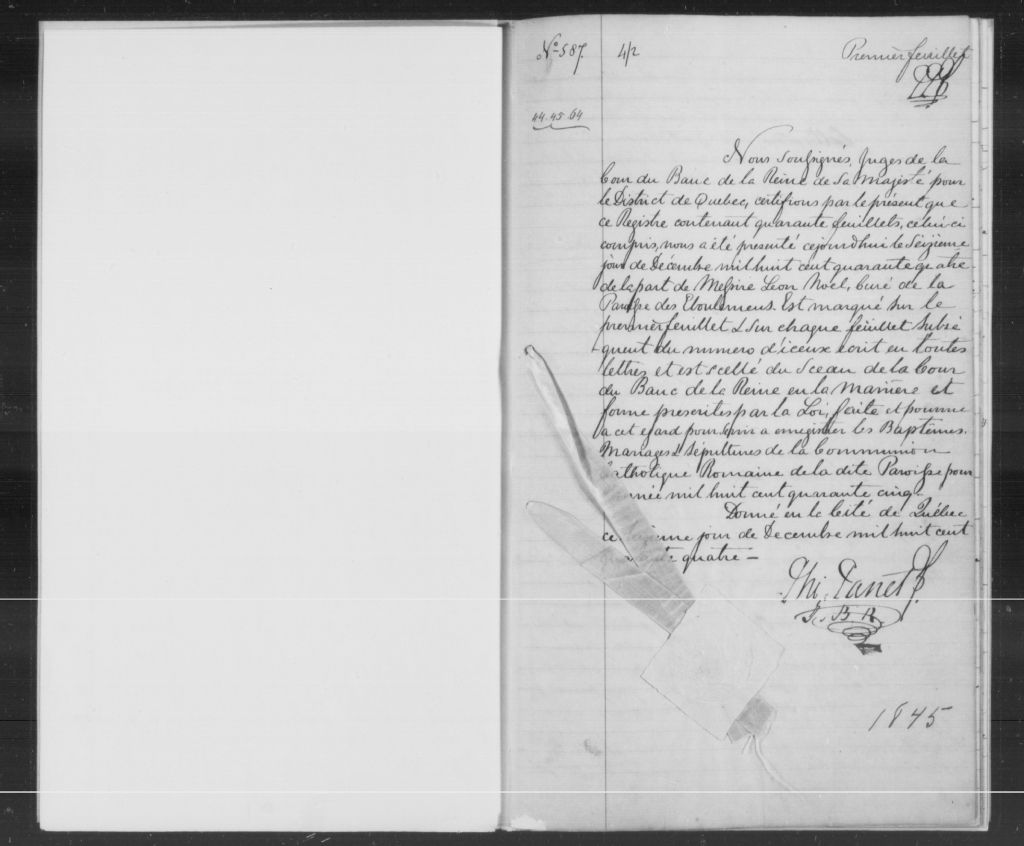 No. 587. 4/2 Premier feuillet
44. 45. 64
Nous soussignés, Juges de la
Cour du Banc de la Reine de Sa Majesté pour
le District de Quebec, certifions par le présent que
ce Registre contenant quarante feuillets, celui-ci
compris, nous a été présenté cejourd'hui le Seizieme
jour de Décembre mil huit cent quarante quatre
de la part de Messire Leon Noël, Curé de la
Paroisse des Eboulemens. Est marqué sur le
premier feuillet & sur chaque feuillet subsé
quent du numero d'iceux ecrit en toutes
lettres et est scellé du Sceau de la Cour
du Banc de la Reine en la Maniere et
forme prescrites par la Loi, faite et pourvue
a cet egard pour servir a enregistrer les Baptêmes.
Mariages & Sépultures de la Communion
Catholique Romaine de la dite Paroisse pour
année mil huit cent quarante cinq.
Donné en la Cité de Québec
ce jour de Decembre mil huit cent
quatre —
Ph. Panet
J. B. R.
1845